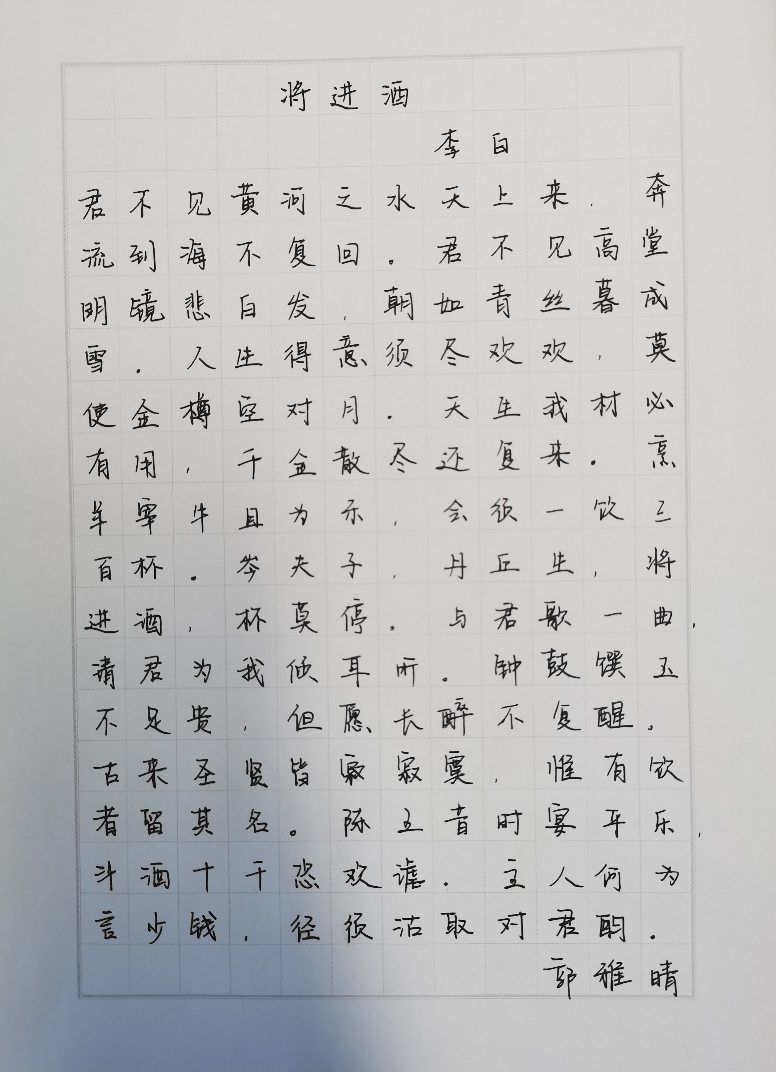 将进酒
李白
君不见黄河之水天上来,奔
流到海不复回。君不见高堂
明镜悲白发,朝如青丝暮成
雪。人生得意须尽欢欢,莫
使金樽空对月。天生我材必
有用,千金散尽还复来。烹
羊宰牛且为乐,会须一饮三
百杯。岑夫子,丹丘生,将
进酒,杯莫停。与君歌一曲,
请君为我倾耳听。钟鼓馔玉
不足贵,但愿长醉不复醒。
古来圣贤皆寂寂寞,惟有饮
者留其名。陈王昔时宴平乐,
斗酒十千恣欢谑。主人何为
言少钱,径须沽取对君酌。
郭雅晴